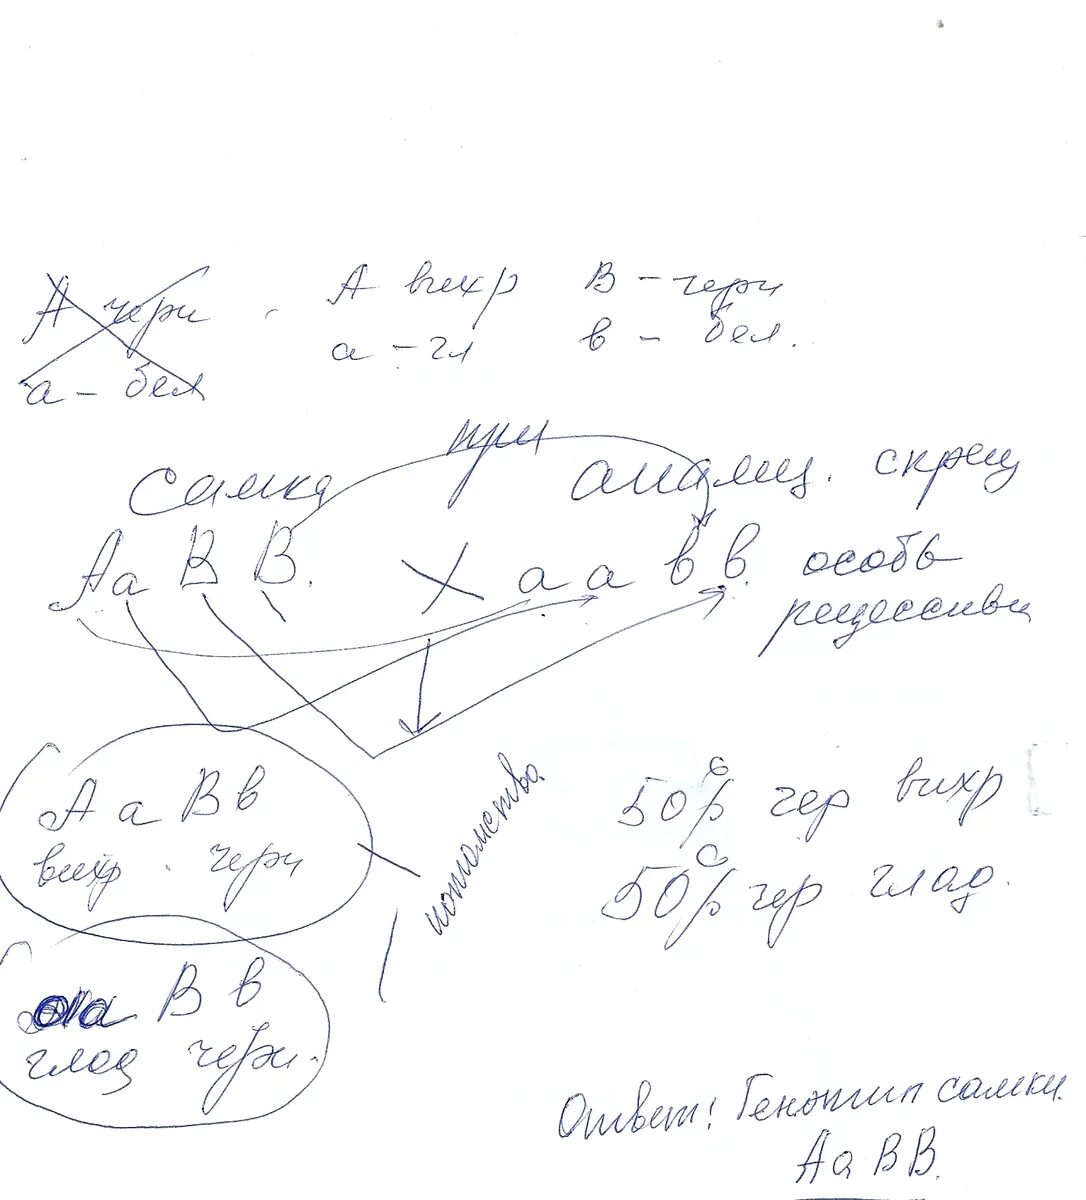 А черн
а - бел
А вихр
а - гл
В - черн
в - бел.
при
самка
анализ. скрещ
Аа В В. X а а в в. особь
рецессивн
А а В в
вихр. черн
потомство.
аа В в
глад черн.
50% чер вихр
50% чер глад.
Ответ! Генотип самки.
Аа ВВ.